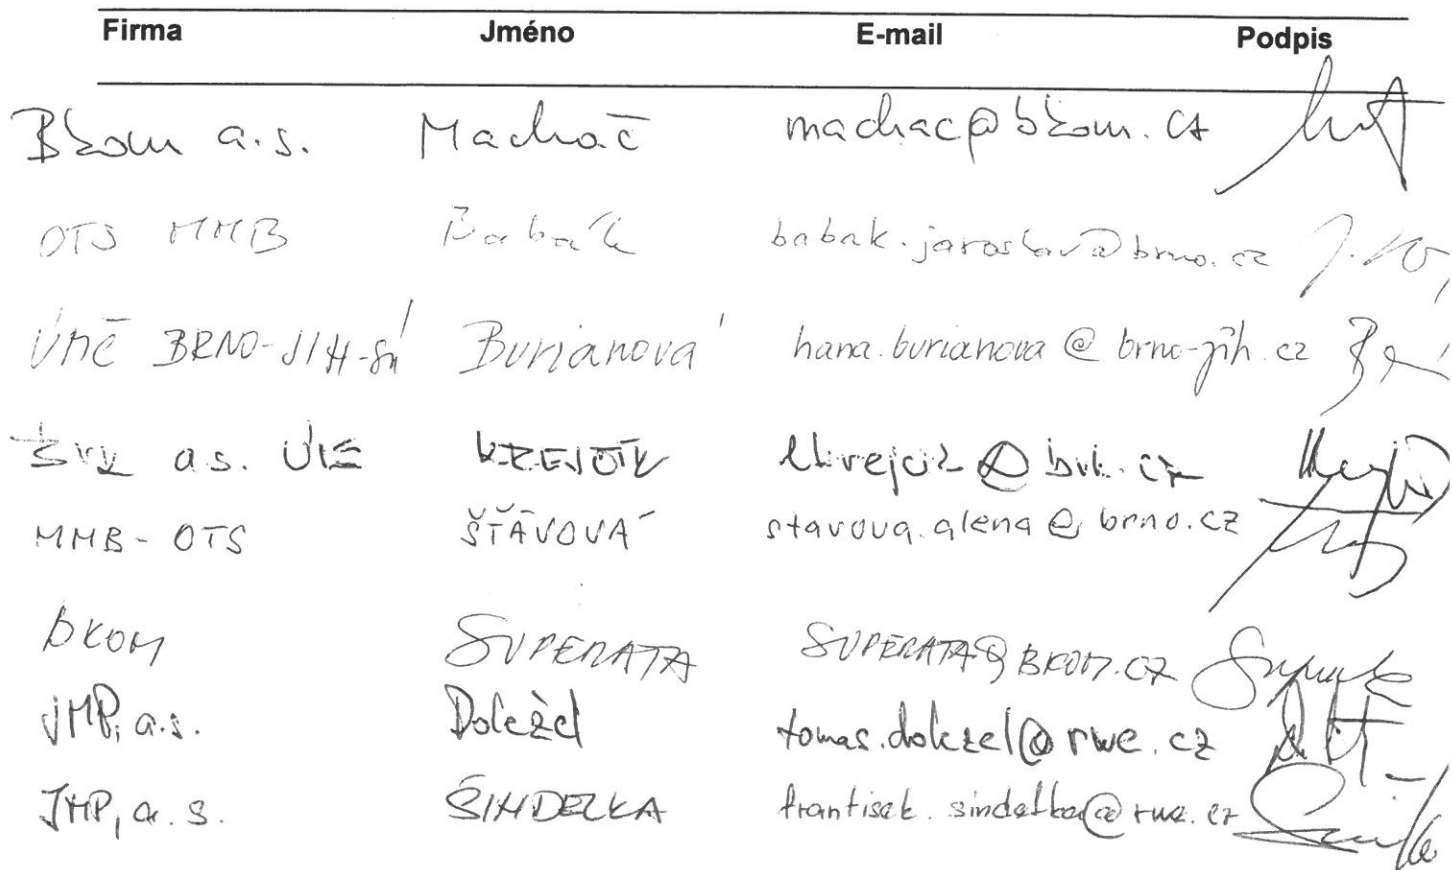 Firma Jméno E-mail Podpis
Bkom a.s. Machač machac@bkom.cz
OTS MMB Babák babak.jaroslav@brno.cz
ÚMČ BRNO-JIH- Burianová hana.burianova@brno-jih.cz
a.s. KREJČÍK @bvk.cz
MMB-OTS ŠŤÁVOVÁ stavova.alena@brno.cz
BKOM SUPERATA SUPERATA@BKOM.CZ
JMP, a.s. Doležel tomas.dolezel@rwe.cz
JMP, a.s. ŠINDELKA frantisek.sindelka@rwe.cz